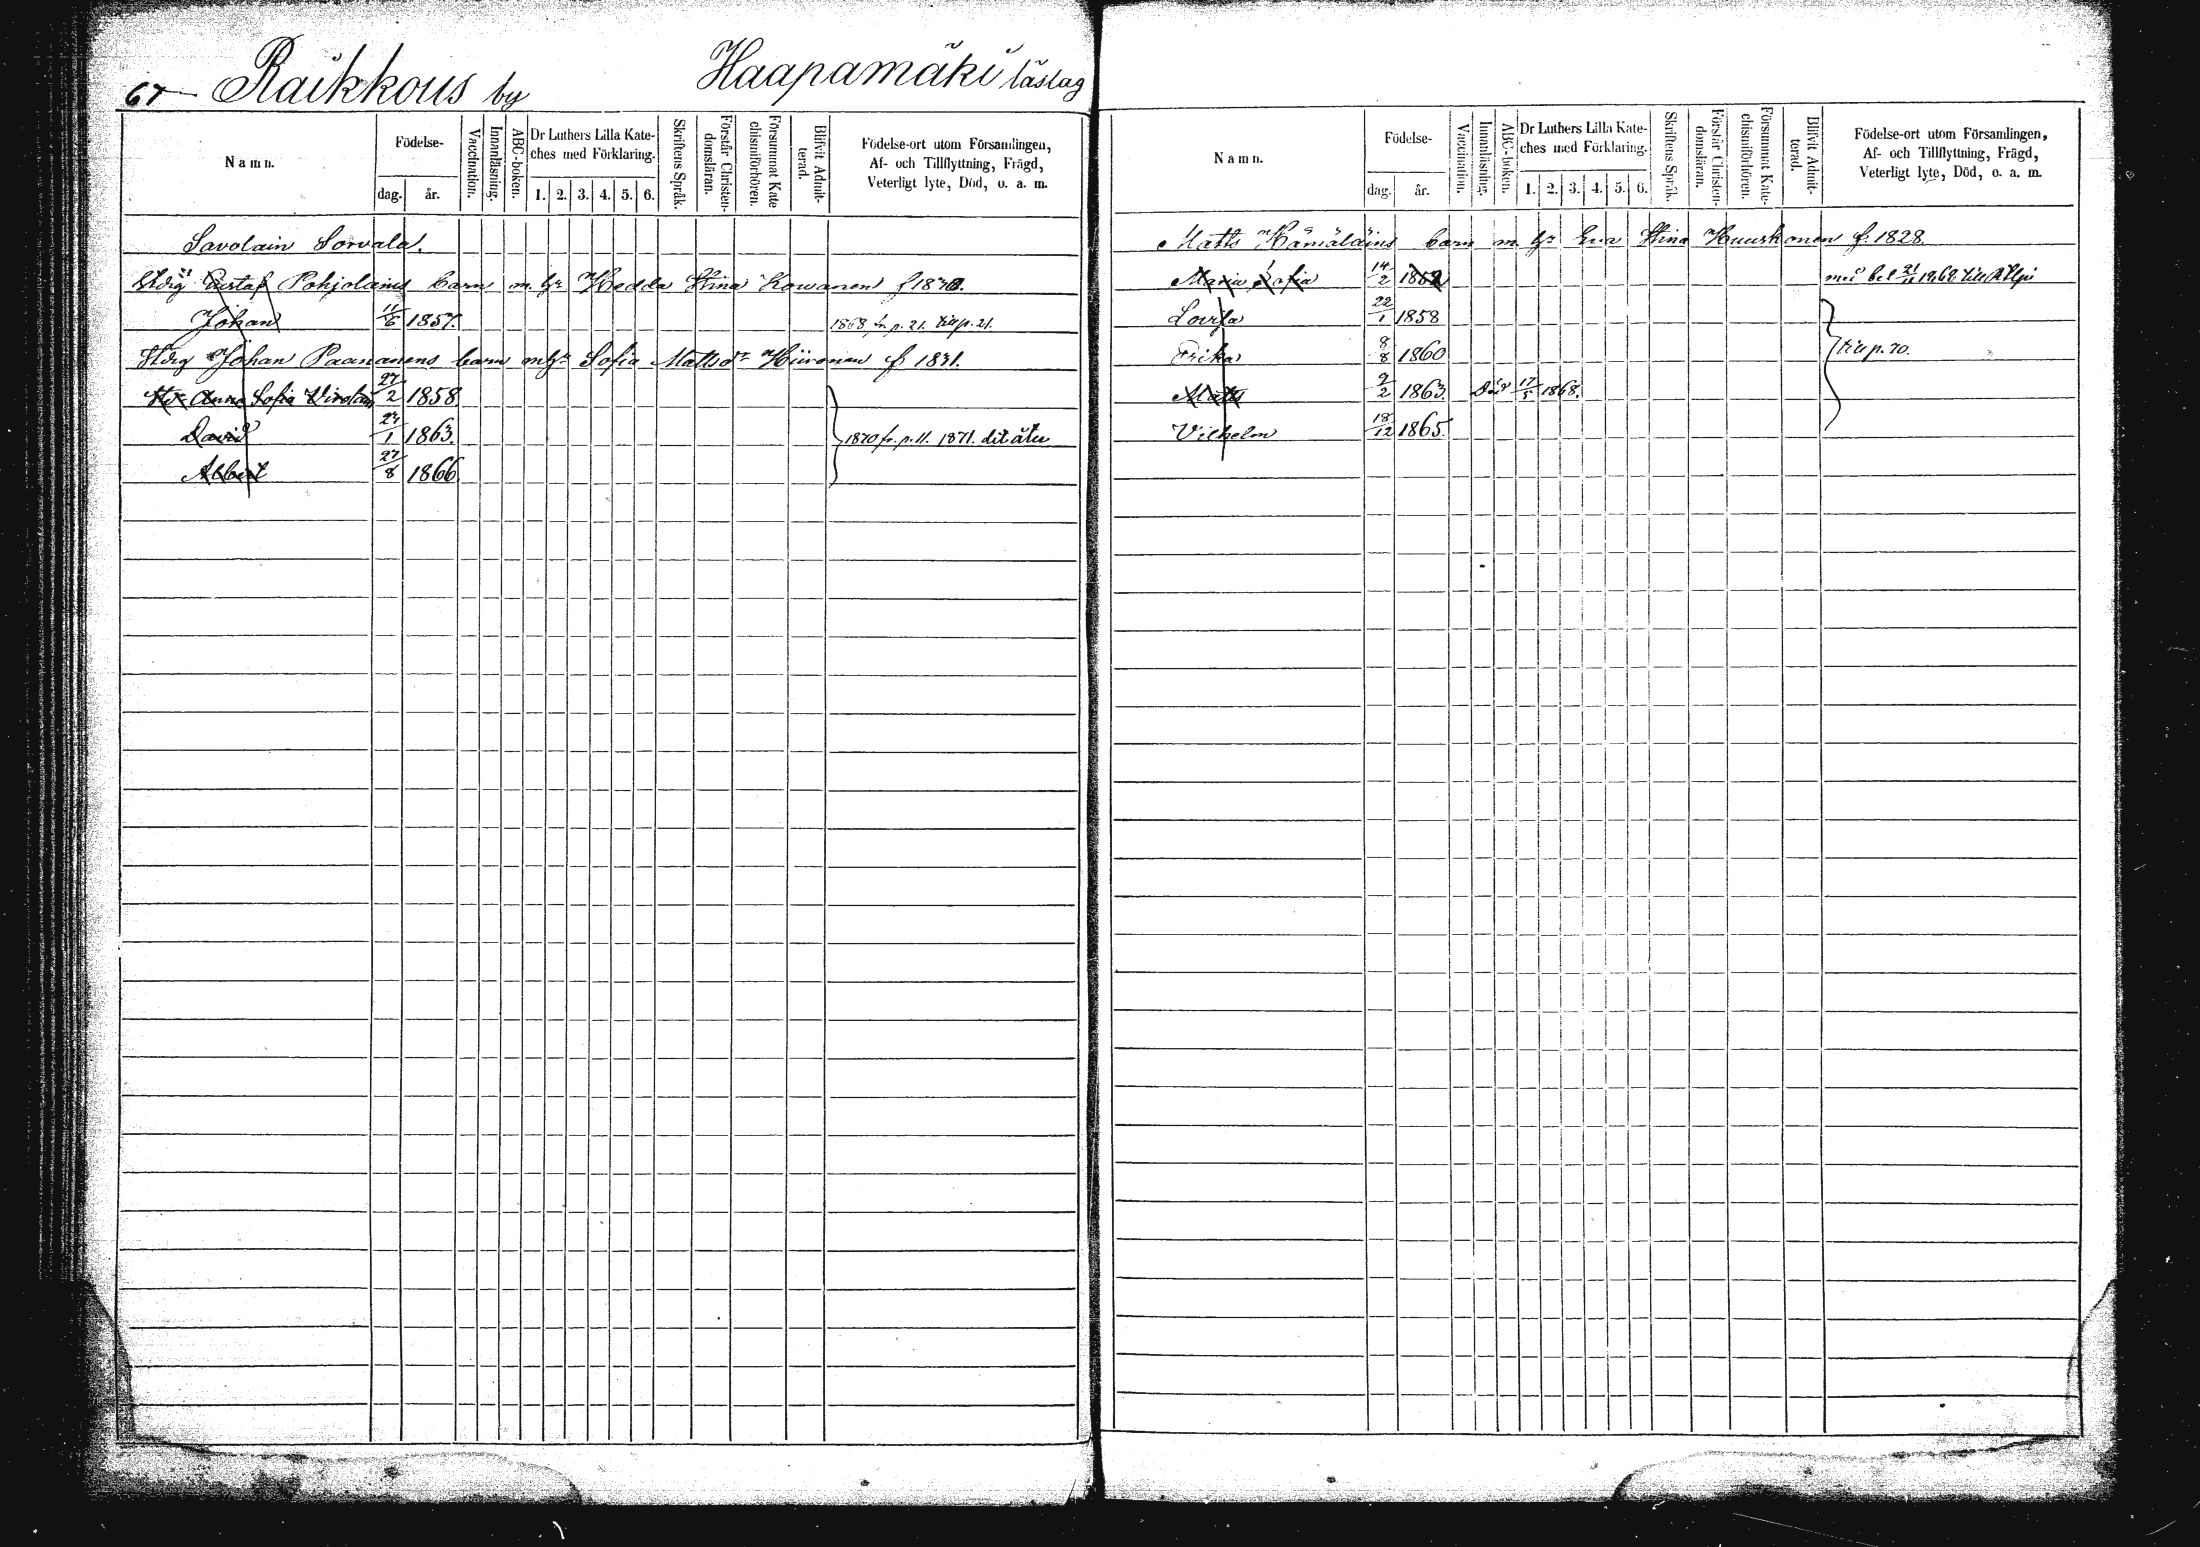 67 Raikkous by Haapamäki läslag
Namn.
Födelse-
dag. år.
Vaccination.
Innanläsning.
ABC-boken.
Dr Luthers Lilla Kate-
ches med Förklaring.
1. 2. 3. 4. 5. 6.
Skriftens Språk.
Förstår Christen-
domsläran.
Försummat Kate-
chismiförhören.
Blifvit Admit-
terad.
Födelse-ort utom Församlingen,
Af- och Tillflyttning, Frägd,
Veterligt lyte, Död, o. a. m.
Savolain Sorvala.
Gustaf Pohjolains barn m. hr Hedda Stina Kowanen f 1830.
Johan 11/6 1857. 1868 fr p. 21. till p. 21.
Johan Paananens barn m hr Sofia Mattsdr Hiironen f 1831.
Anna Sofia 27/2 1858
David 27/1 1863. 1870 fr. p. 11. 1871. dit åter
Albert 27/8 1866
Namn.
Födelse-
dag. år.
Vaccination.
Innanläsning.
ABC-boken.
Dr Luthers Lilla Kate-
ches med Förklaring.
1. 2. 3. 4. 5. 6.
Skriftens Språk.
Förstår Christen-
domsläran.
Försummat Kate-
chismiförhören.
Blifvit Admit-
terad.
Födelse-ort utom Församlingen,
Af- och Tillflyttning, Frägd,
Veterligt lyte, Död, o. a. m.
Matts Hämäläins barn m. hr Eva Stina Kuuskonen f. 1828.
Maria Sofia 14/2 1852 med bet 21/11 1868 till
Lovisa 22/1 1858
Erika 8/8 1860 till p. 70.
Matts 9/2 1863. Död 17/5 1868.
Vilhelm 18/12 1865.